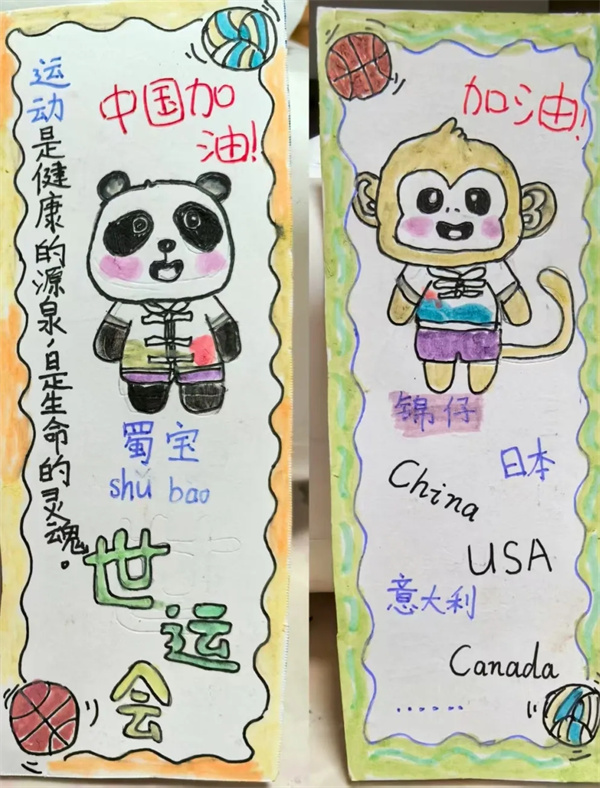 中国加
油!
运动是健康的源泉,自是生命的灵魂。
蜀宝
shǔ bao
世
运
会
加油!
锦仔
日本
China
USA
意大利
Canada
......